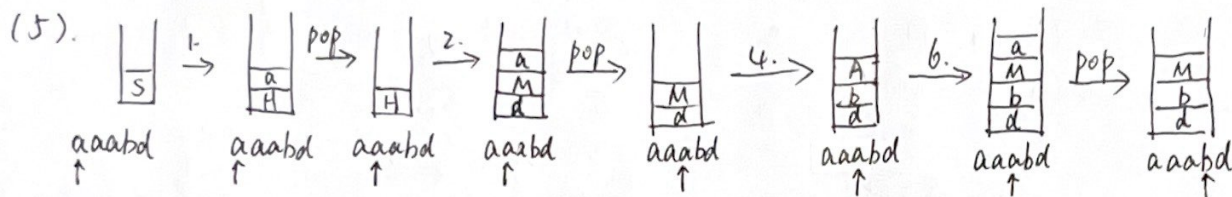 (5). S 1. a H pop H 2. a M d pop M d 4. A b d 6. a M b d pop M b d
aaabd aaabd aaabd aaabd aaabd aaabd aaabd aaabd